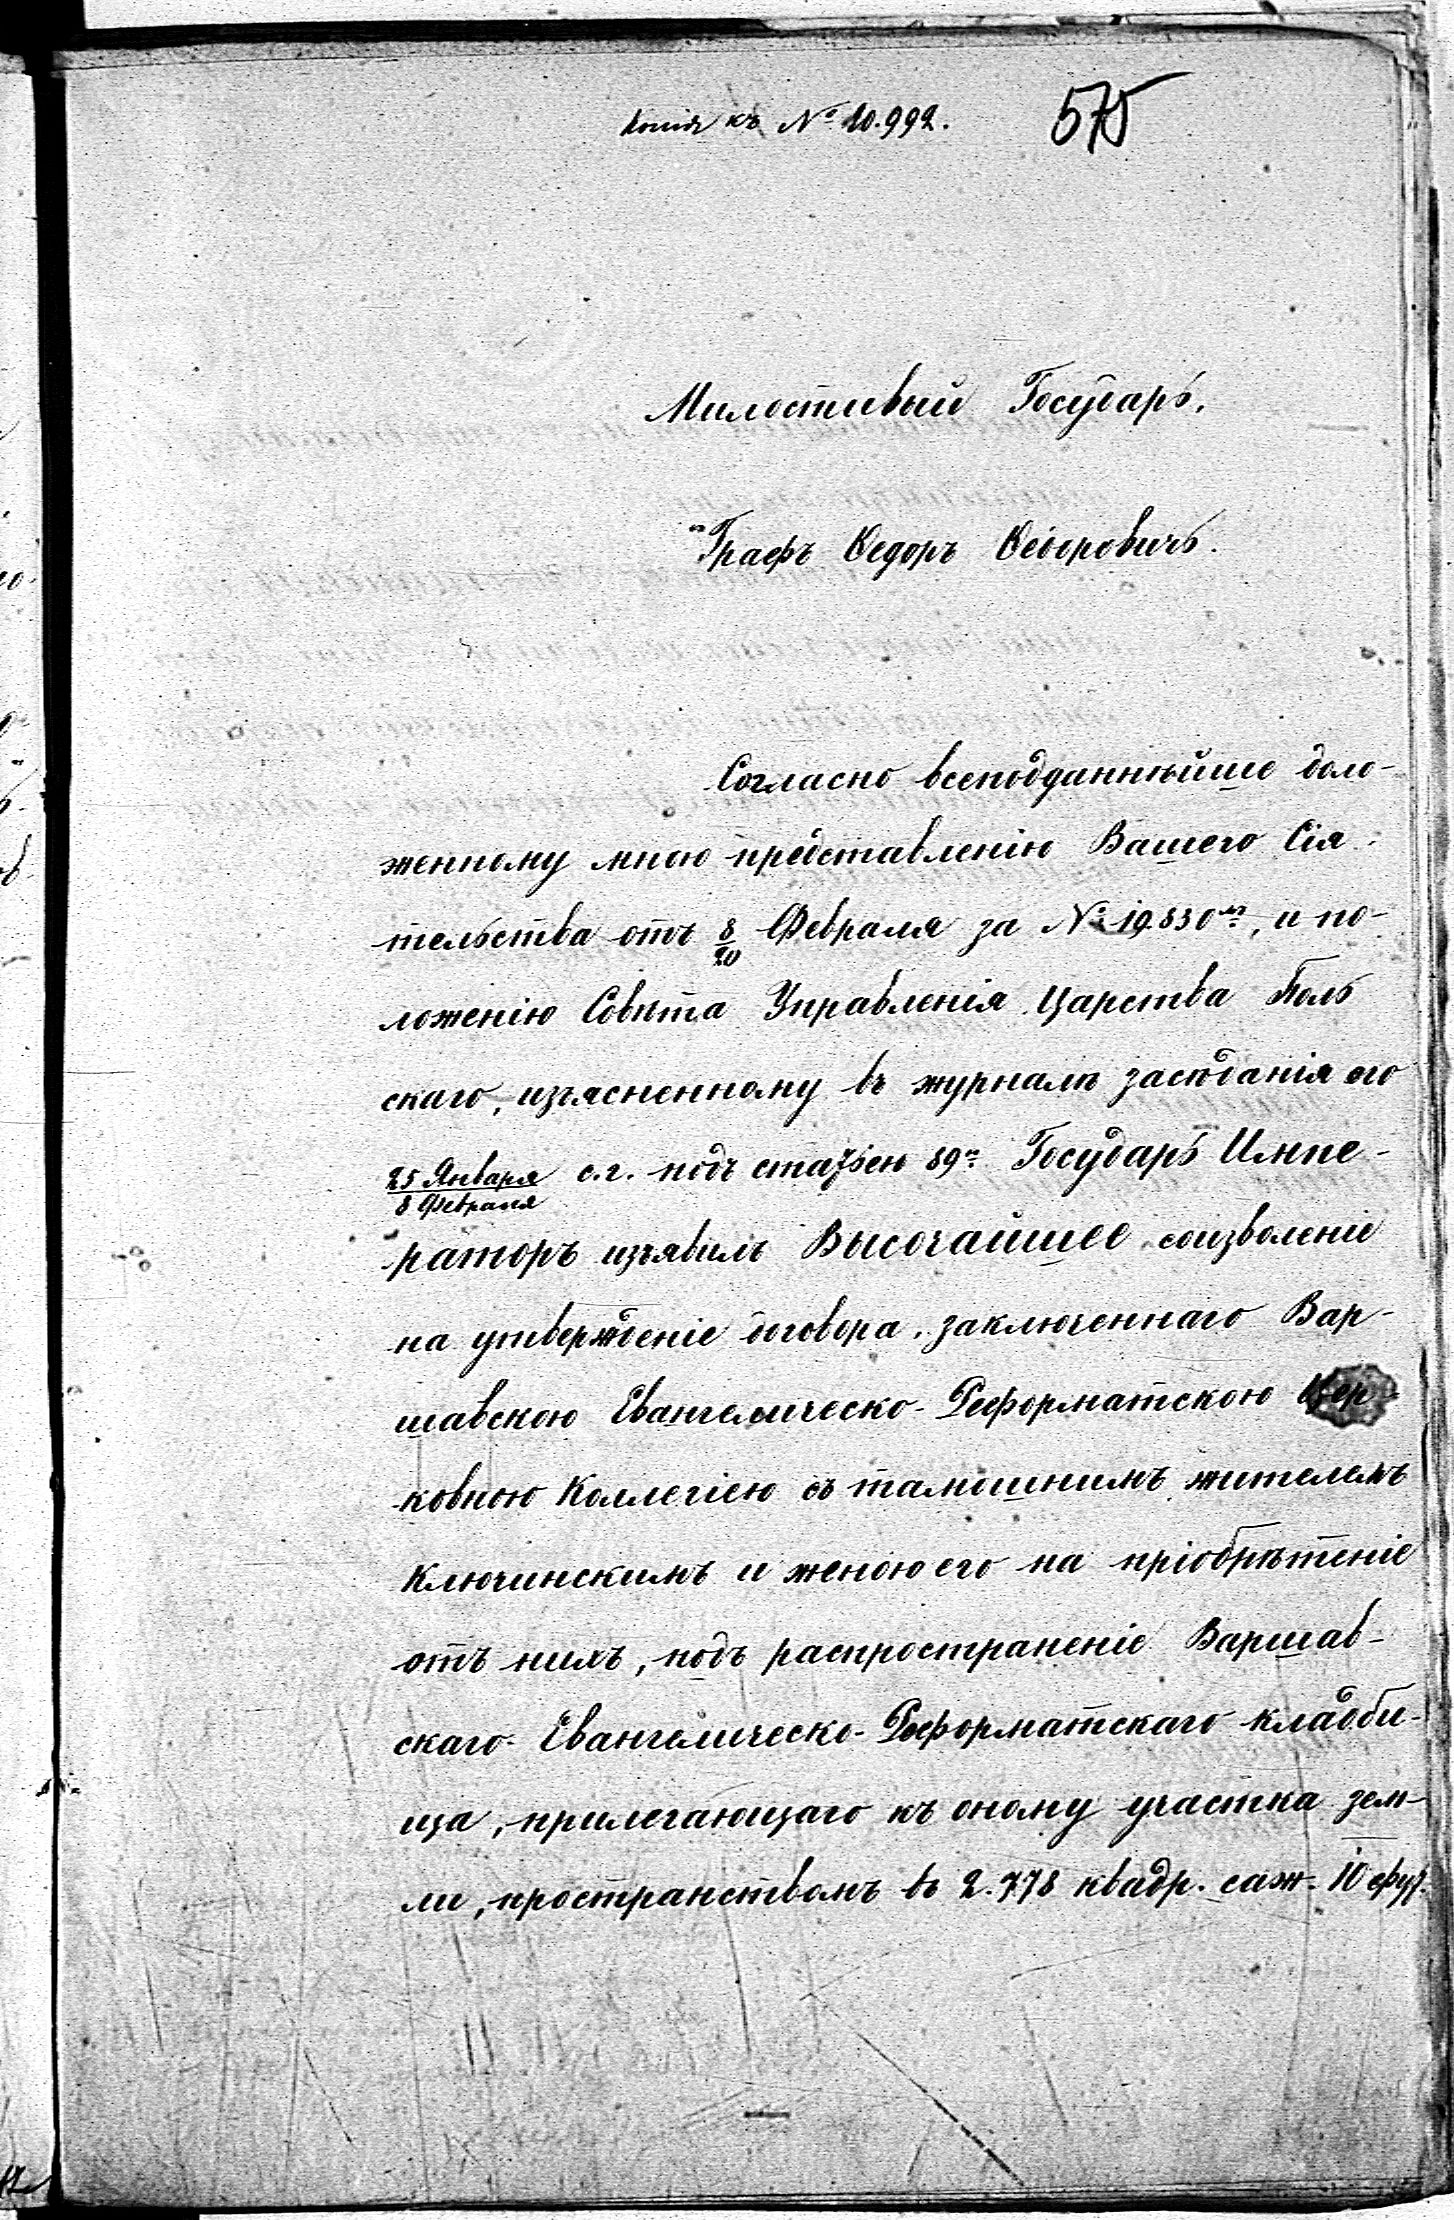 Копія къ № 10.992. 575
Милостивый Государь,
Графъ Ѳедоръ Ѳедоровичъ.
Согласно всеподданнѣйше доло-
женному мною представленію Вашего Сія-
тельства отъ 8/20 Февраля за № 19.830мъ, и по-
ложенію Совѣта Управленія Царства Поль
скаго, изъясненному въ журналѣ засѣданія его
25 Января/8 Февраля с.г. подъ статьею 89ю Государь Импе-
раторъ изъявилъ Высочайшее соизволеніе
на утвержденіе договора, заключеннаго Вар-
шавскою Евангелическо-Реформатскою Цер-
ковною Коллегіею съ тамошнимъ жителемъ
Ключинскимъ и женою его на пріобрѣтеніе
отъ нихъ, подъ распространеніе Варшав-
скаго Евангелическо-Реформатскаго кладби-
ща, прилегающаго къ оному участка зем-
ли, пространствомъ въ 2.778 квадр. саж. 10 фут.